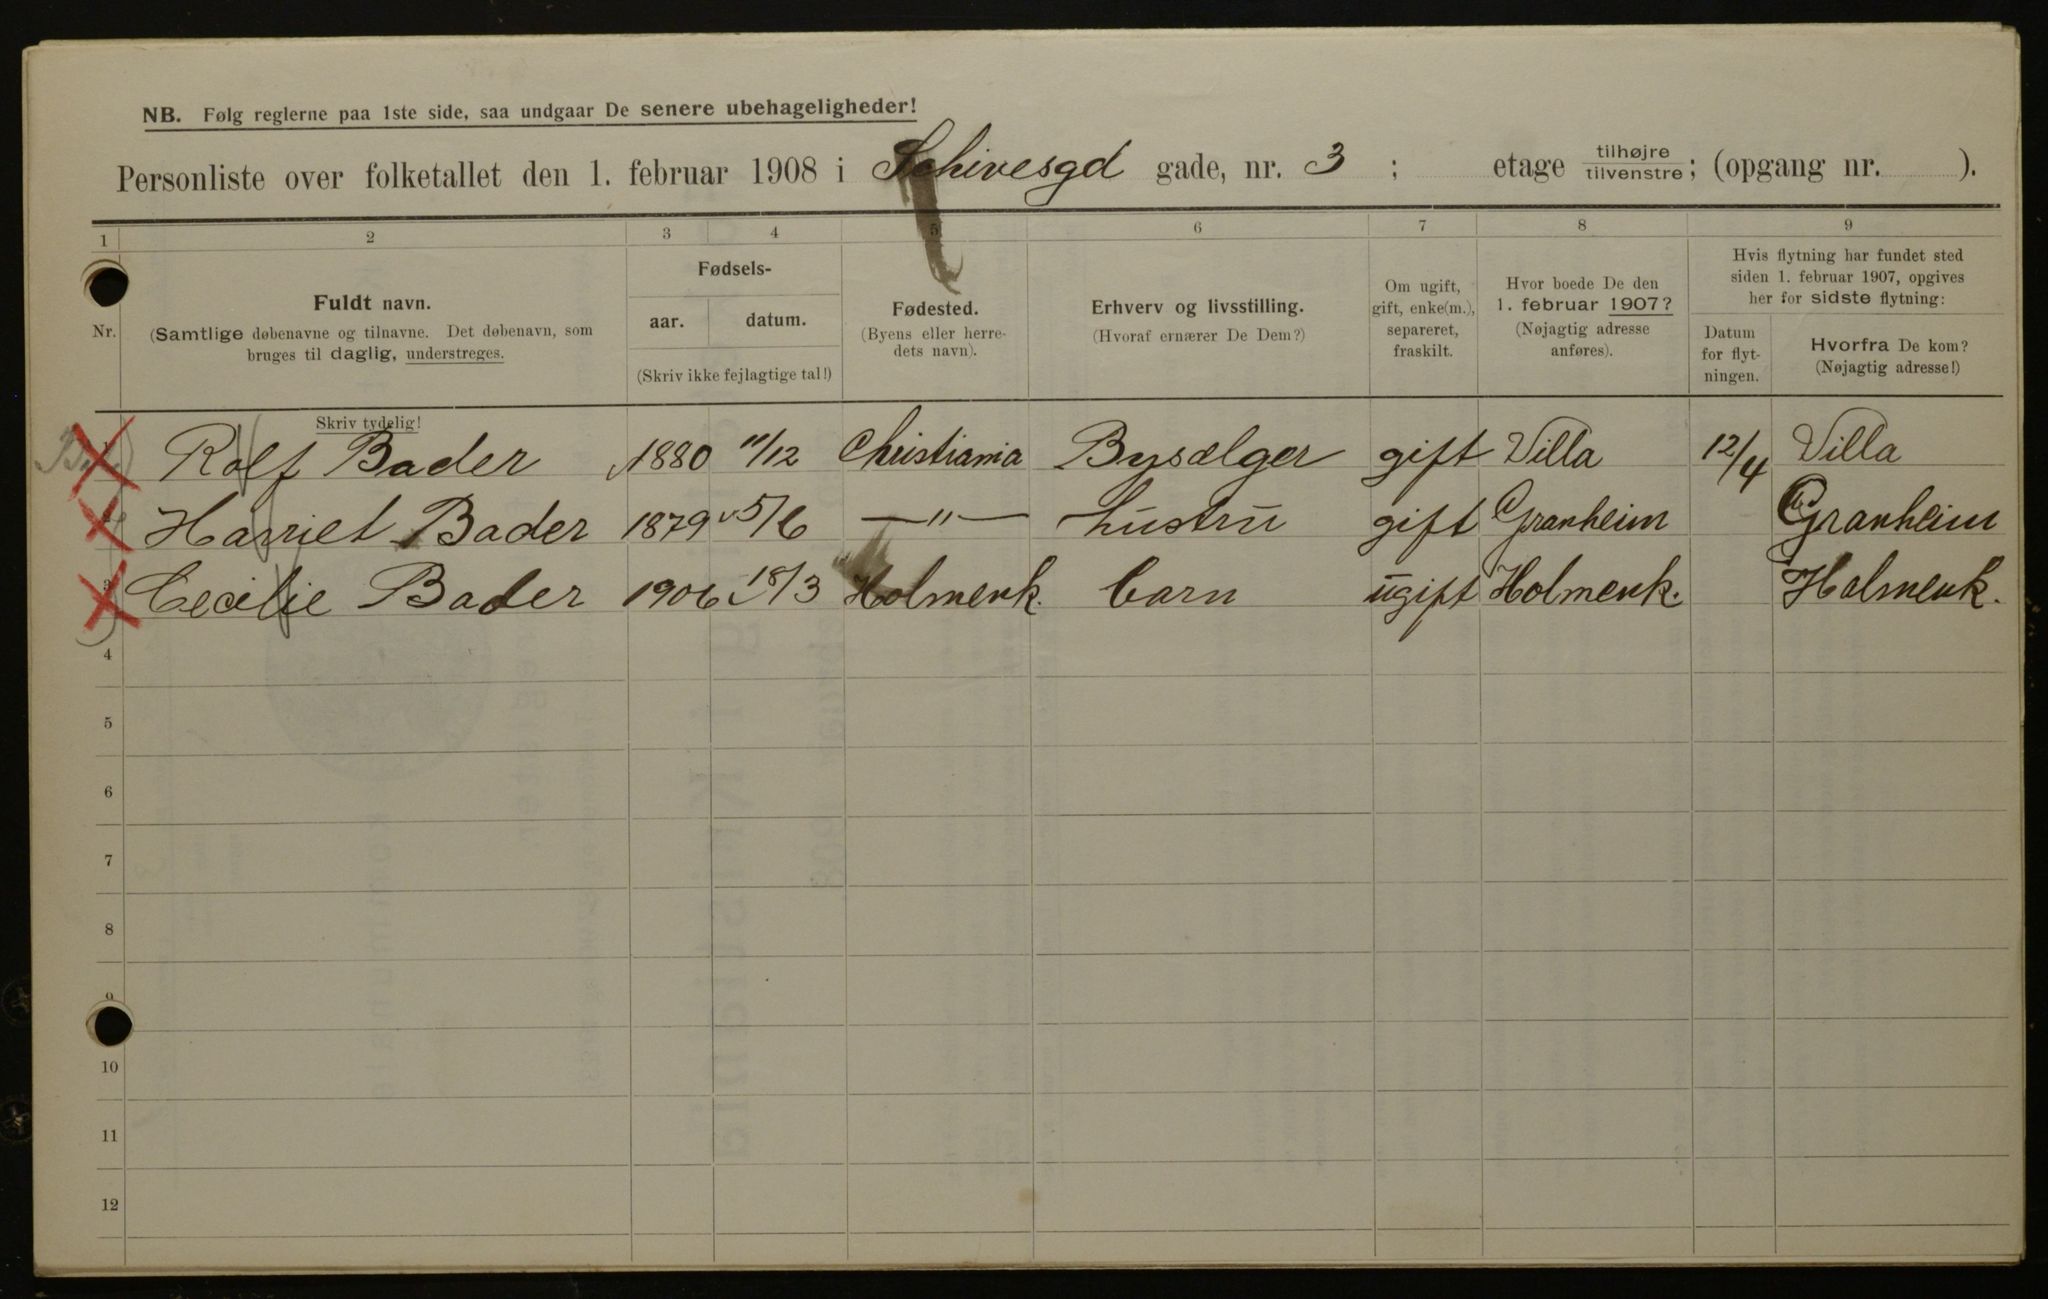 NB. Følg reglerne paa 1ste side, saa undgaar De senere ubehageligheder!
Personliste over folketallet den 1. februar 1908 i Schivesgd gade, nr. 3 ; etage tilhøjre / tilvenstre ; (opgang nr. ).
1 2 3 4 5 6 7 8 9
Nr.
Fuldt navn.
(Samtlige døbenavne og tilnavne. Det døbenavn, som
bruges til daglig, understreges.
Skriv tydelig!
Fødsels-
aar. datum.
(Skriv ikke fejlagtige tal!)
Fødested.
(Byens eller herre-
dets navn).
Erhverv og livsstilling.
(Hvoraf ernærer De Dem?)
Om ugift,
gift, enke(m.),
separeret,
fraskilt.
Hvor boede De den
1. februar 1907?
(Nøjagtig adresse
anføres).
Hvis flytning har fundet sted
siden 1. februar 1907, opgives
her for sidste flytning:
Datum
for flyt-
ningen.
Hvorfra De kom?
(Nøjagtig adresse!)
1 Rolf Bader 1880 11/12 Christiania Bysælger gift Villa 12/4 Villa
Harriet Bader 1879 5/6 —"— Hustru gift Granheim Granheim
3 Cecilie Bader 1906 18/3 Holmenk. barn ugift Holmenk. Holmenk.
4
5
6
7
8
9
10
11
12